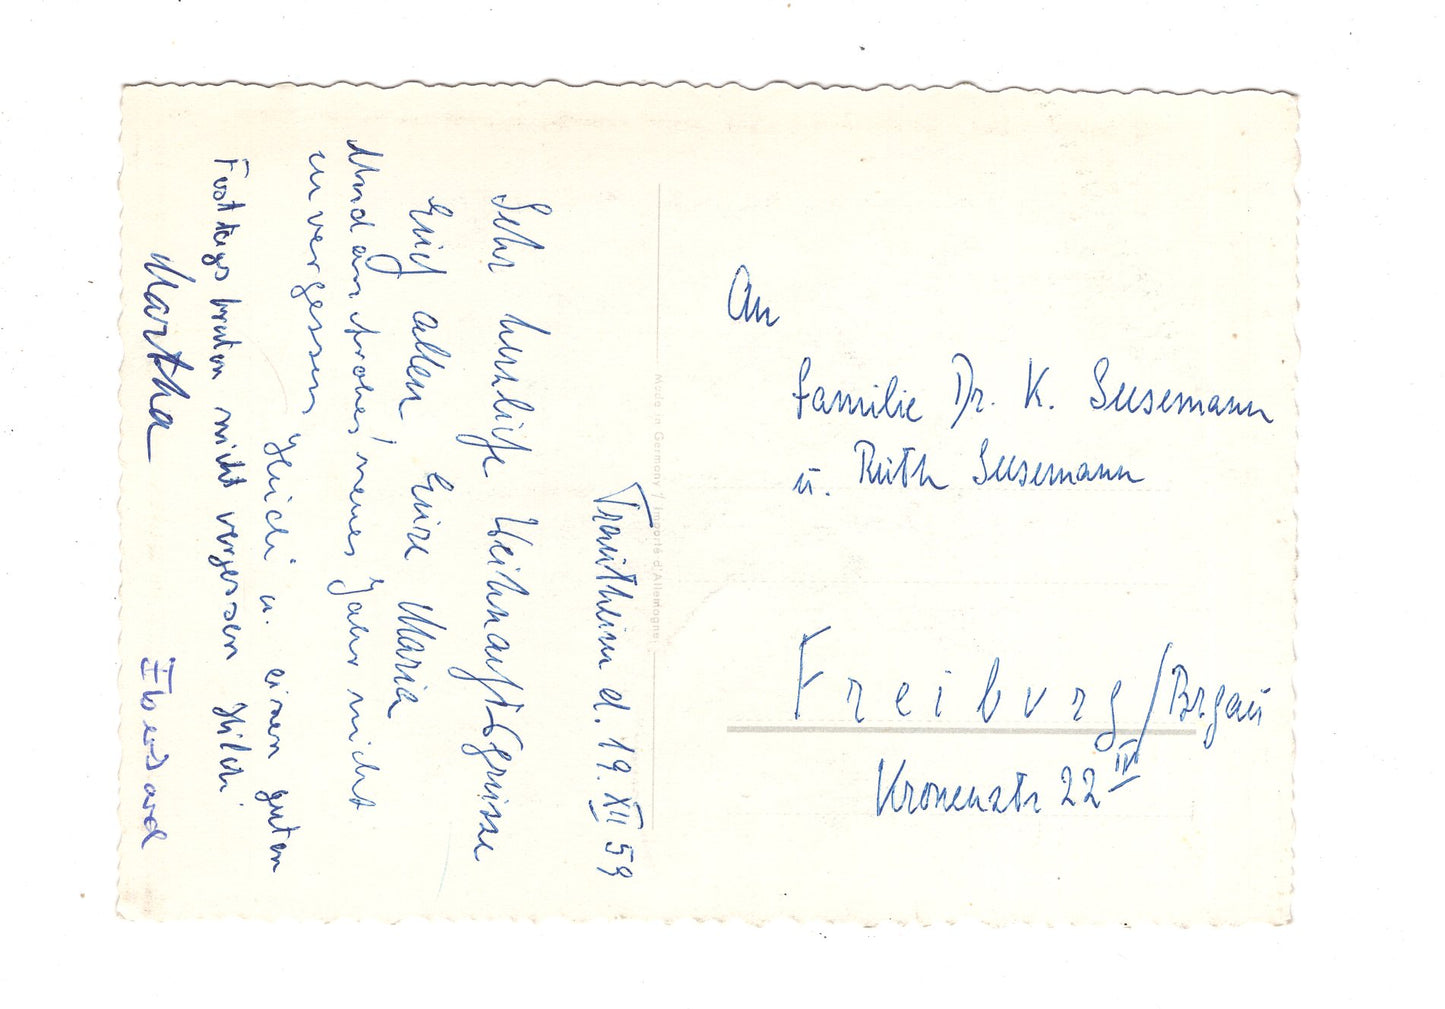 Trautheim d. 19. XII 59
Sehr herzliche Weihnachtsgrüsse
Euch allen! Eure Maria
Und ein frohes neues Jahr nicht
zu vergessen
Heidi u. einen guten
Festtagsbraten nicht vergessen Hildi
Martha Eberhard
Made in Germany / Importé d'Allemagne
An
Familie Dr. K. Susemann
u. Ruth Susemann
Freiburg/Brsgau
Kronenstr 22 IV